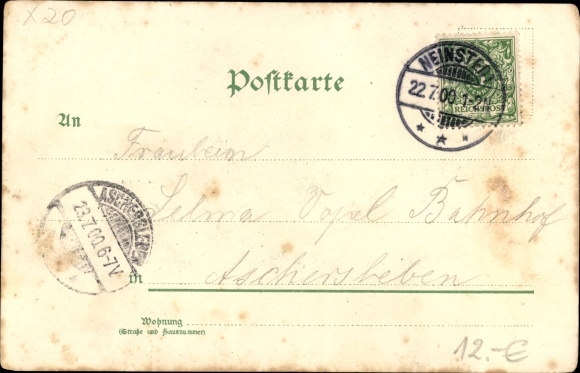 X20
Postkarte
NEINSTEDT
22.7.00.1-2N.
REICHSPOST
An
Fräulein
Selma Vopel Bahnhof
ASCHERSLEBEN
23.7.00.6-7V.
in
Aschersleben
Wohnung
(Straße und Hausnummer)
12.-€